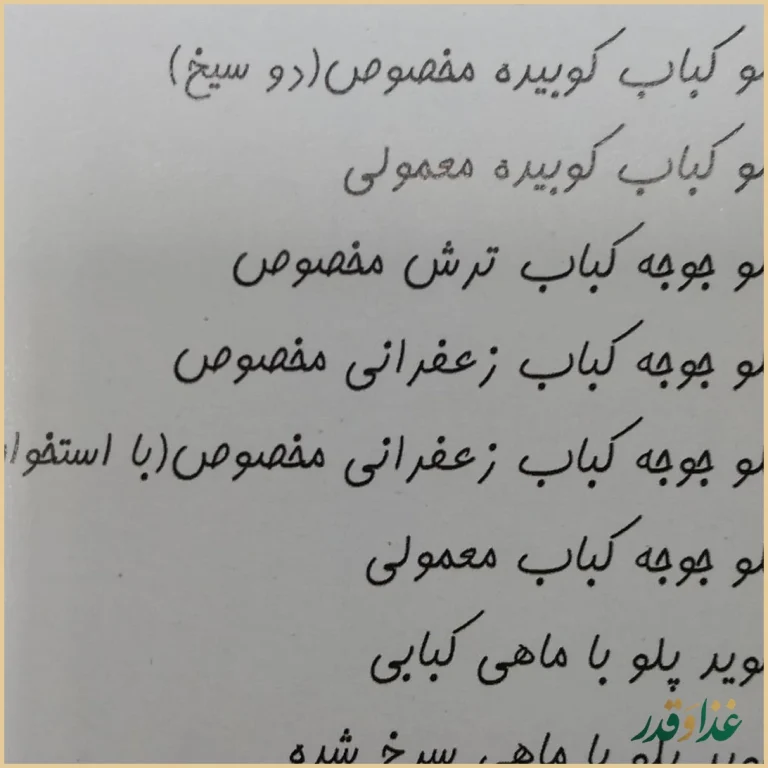 لو کباب کوبیده مخصوص(دو سیخ)
لو کباب کوبیده معمولی
لو جوجه کباب ترش مخصوص
لو جوجه کباب زعفرانی مخصوص
لو جوجه کباب زعفرانی مخصوص(با استخوا
لو جوجه کباب معمولی
وید پلو با ماهی کبابی
وید پلو با ماهی سرخ شده
غذا و قدر